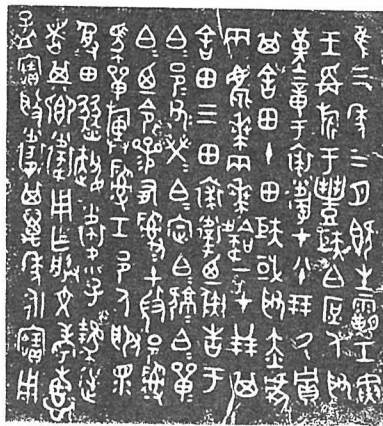 隹三年三月既生霸壬寅
王爯旂于豊矩白庶人取
堇章于裘衛才八十朋厥貯
其舍田十田矩或取赤虎
兩麀𠦪兩𠦪韐一才廿朋其
舍田三田裘衛廼彘告于
白邑父榮白定白𤞷白單
白廼令參有𤔲𤔲土微邑𤔲
馬單旟𤔲工邑人服眔
受田燹趞衛小子逆
者其鄉衛用乍朕文考惠
孟寶般衛其萬年永寶用